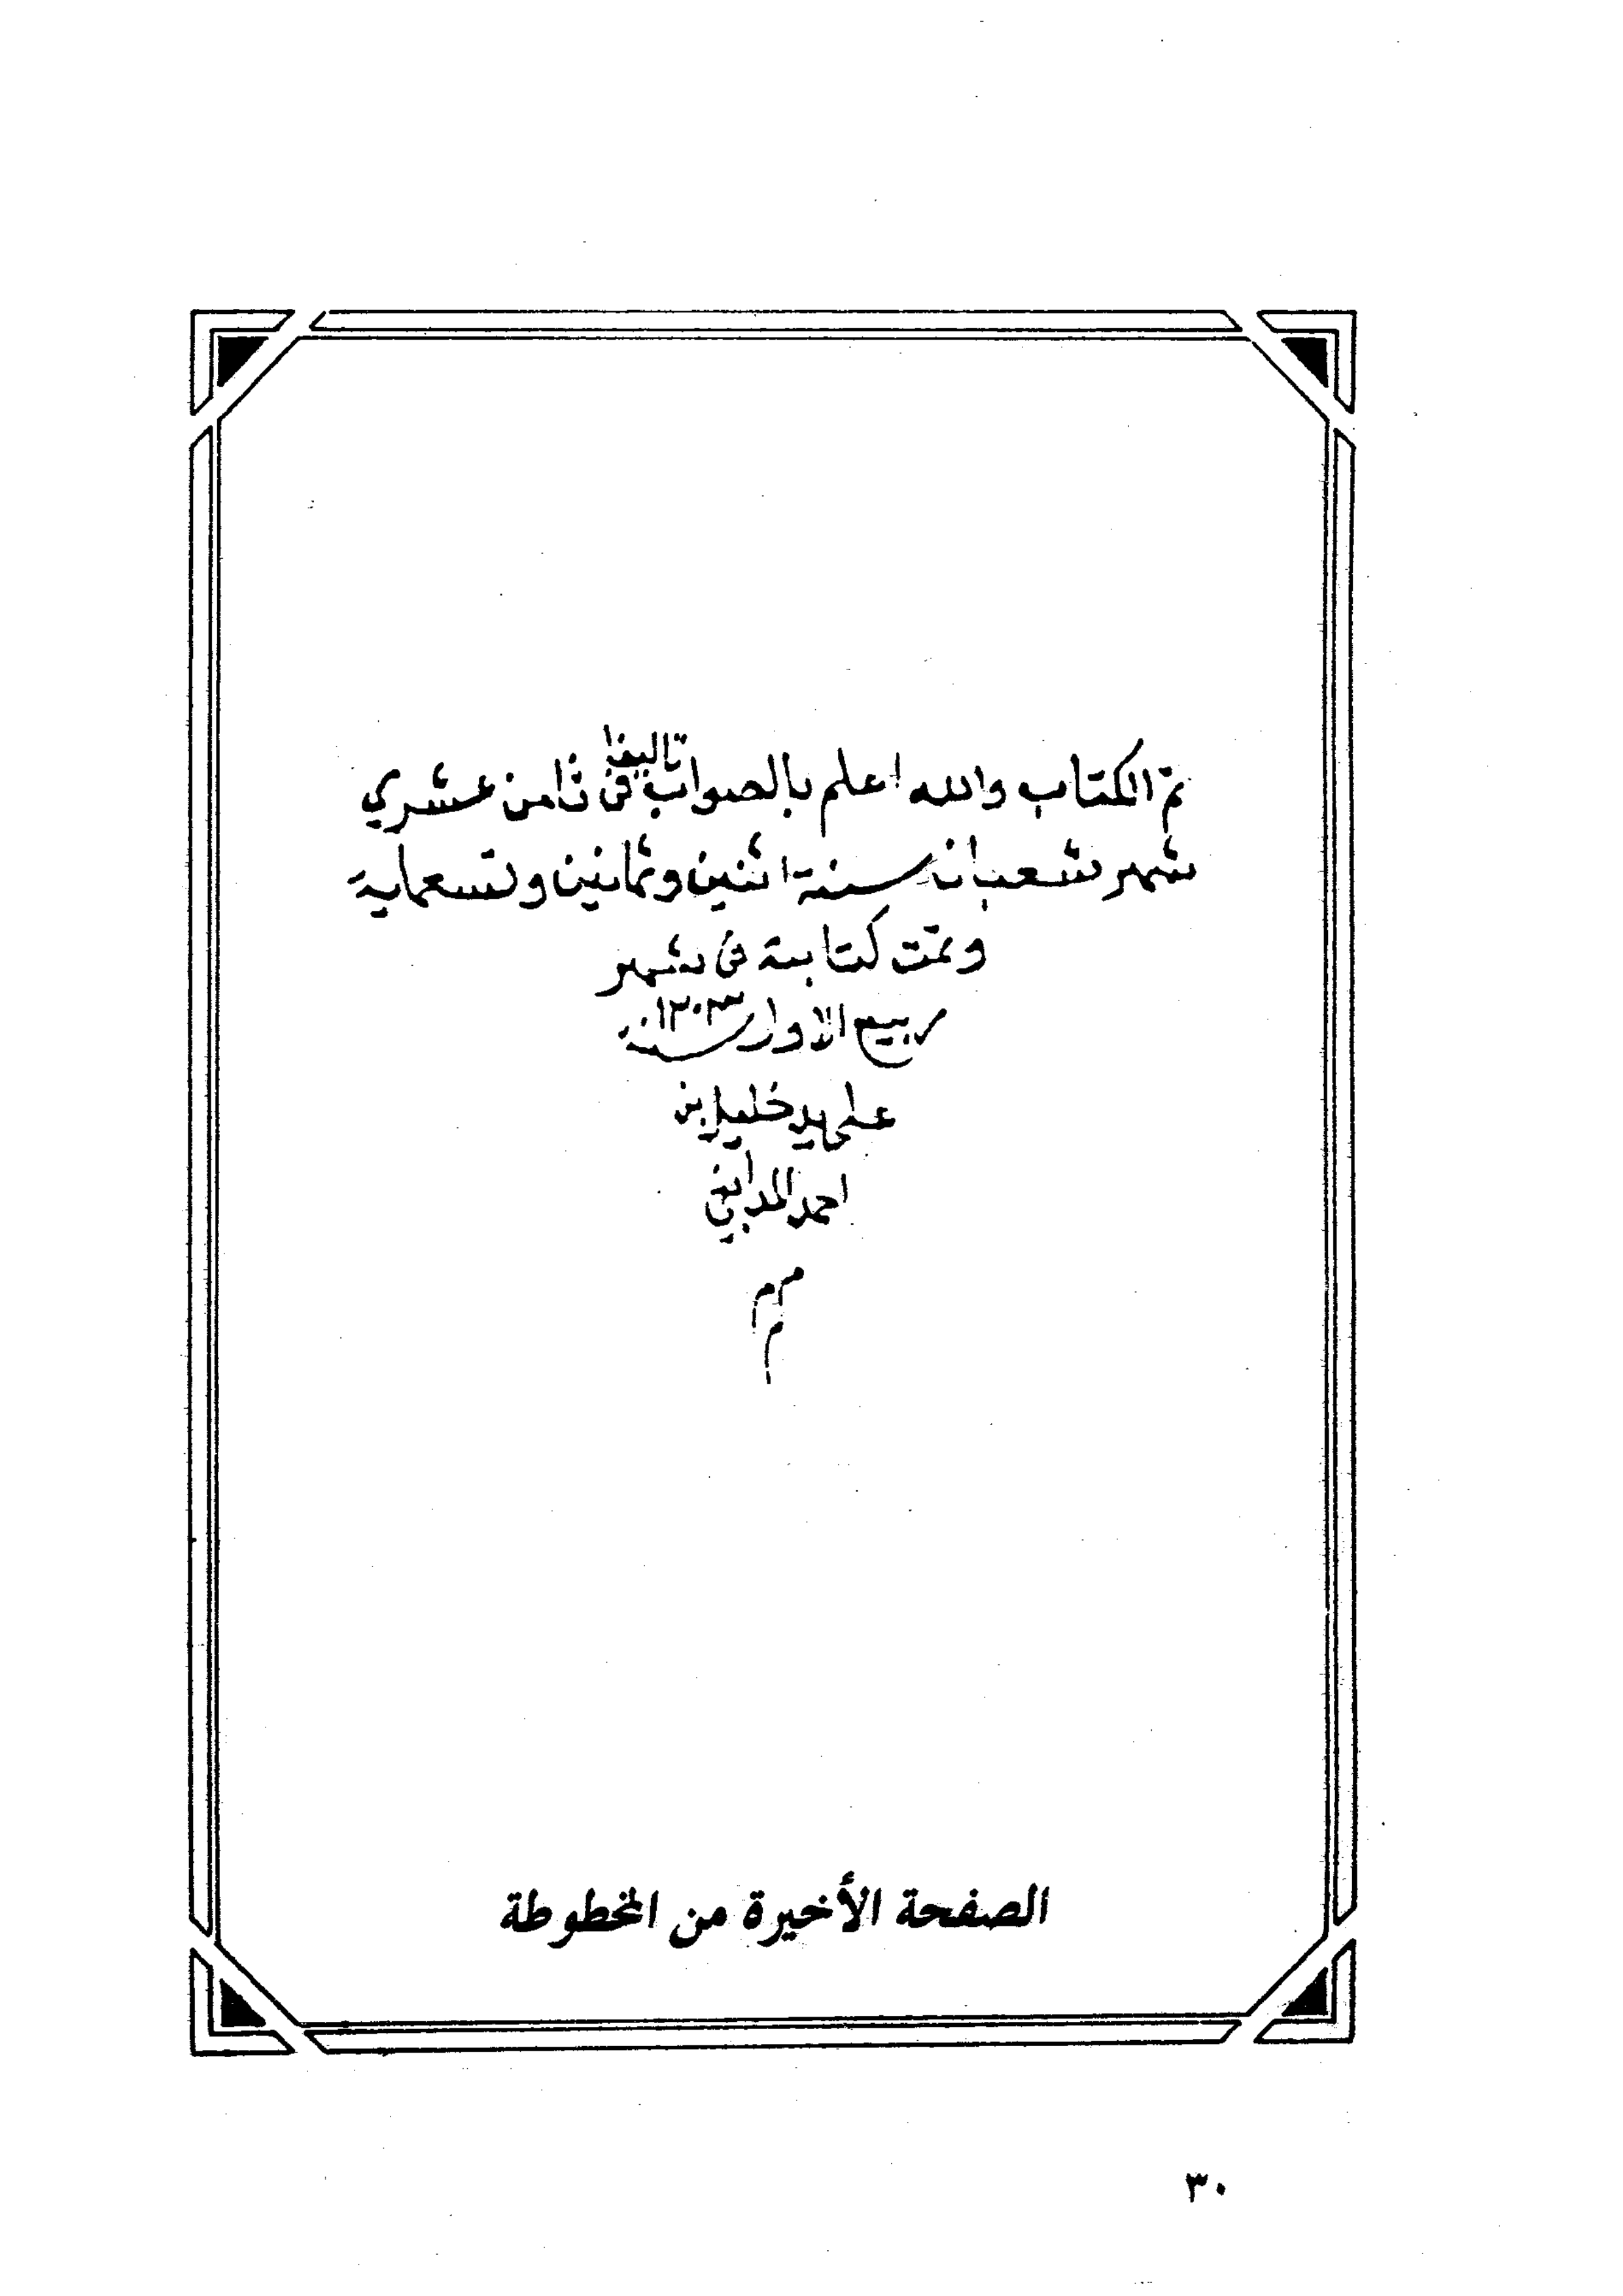 تم الكتاب والله اعلم بالصواب تاليفا في ثامن عشري
شهر شعبان سنة اثنين وثمانين وتسعماية
وتمت كتابته في شهر
ربيع الاول سنة ١٣٠٣
على يد خليل بن
احمد المدابغي
م م
م
الصفحة الأخيرة من المخطوطة
٣٠